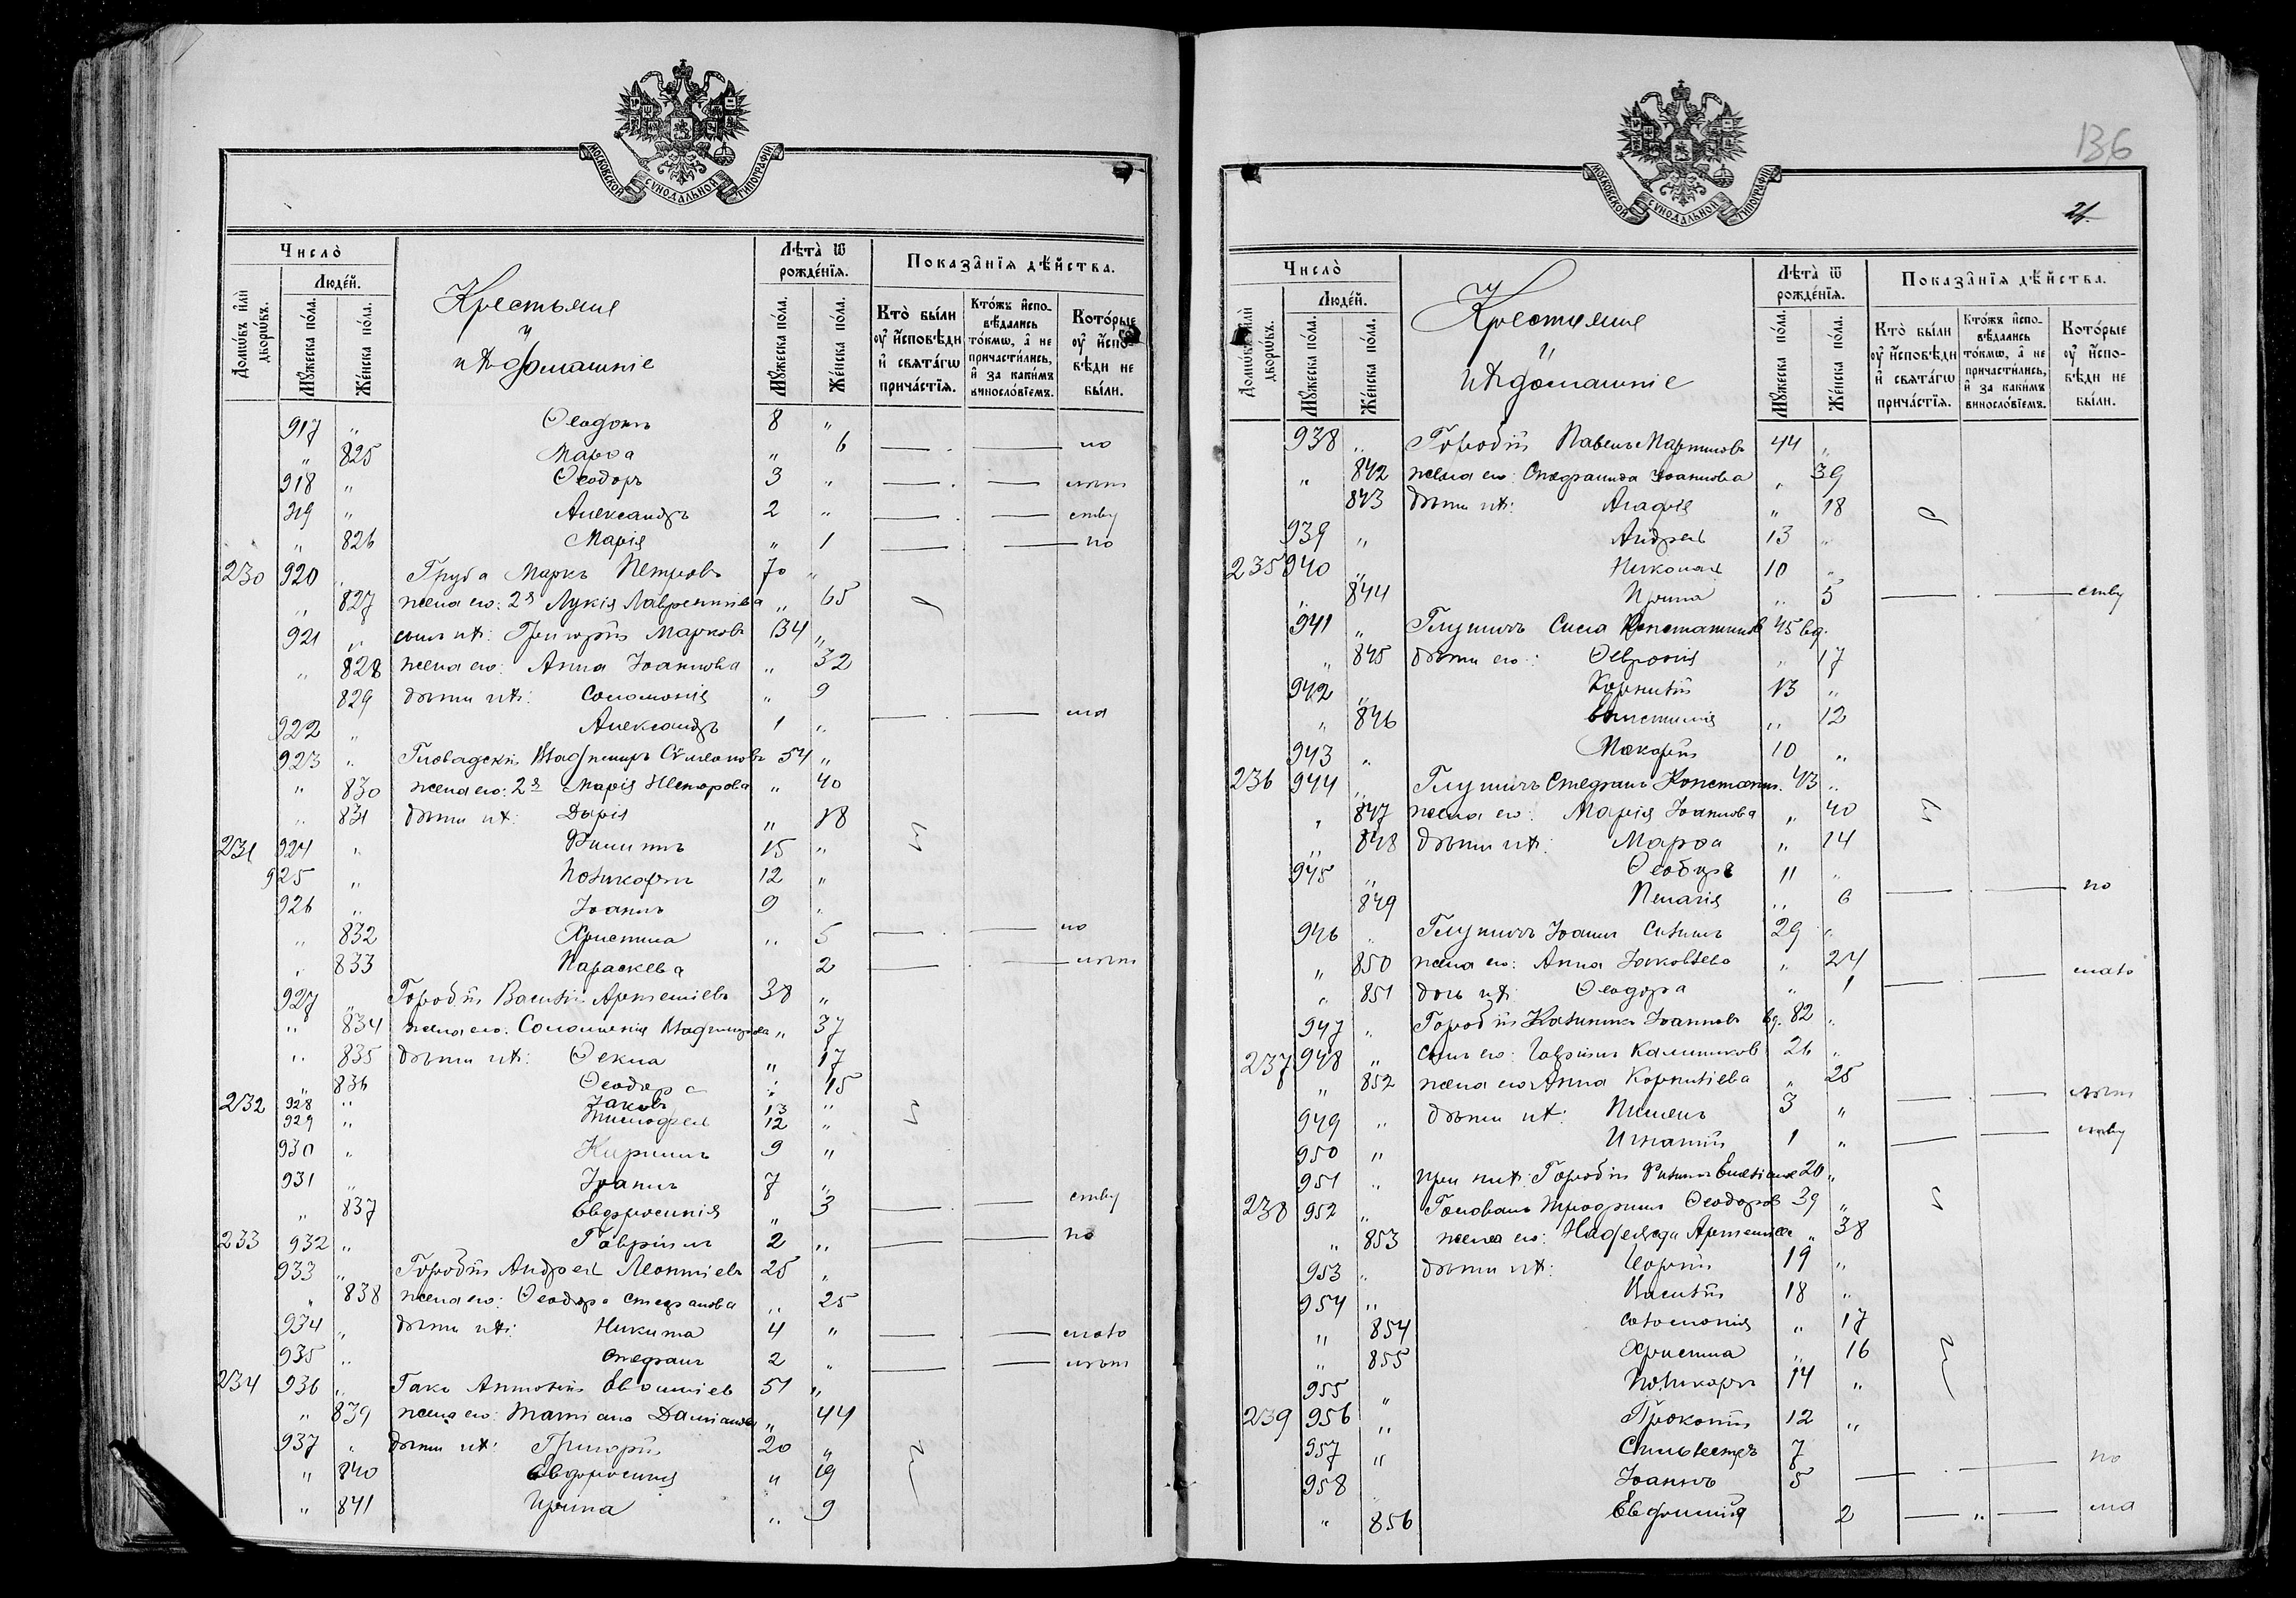 МОСКОВСКОЙ СУНОДАЛЬНОЙ ТИПОГРАФІИ
Число̀
Домѡ́въ и҆лѝ дворѡ́въ.
Люде́й.
Мꙋ́жеска по́ла.
Же́нска по́ла.
Крестьяне
и
ихъ домашніе
Лѣта̀ ѿ рожде́нїѧ.
Мꙋ́жеска по́ла.
Же́нска по́ла.
Показа̑нїѧ дѣ́йства.
Кто̀ бы́ли ᲂу҆ и҆́сповѣди и҆ свѧта́гѡ прича́стїѧ.
Кто́жъ и҆спо-вѣ́дались то́кмѡ, а҆ не причасти́лись, и҆ за каки́мъ винослѡ́вїемъ.
Кото́рые ᲂу҆ и҆́спо-вѣди не бы́ли.
917 „ Ѳеодотъ 8 „
„ 825 Марѳа „ 6 — . — по
918 „ Ѳеодоръ 3 „ — . — лѣт
919 „ Александръ 2 „ — . — ству
„ 826 Марія „ 1 — — по
230 920 „ Груба Маркъ Петровъ 70 „
„ 827 жена его: 2я Лукія Лаврентіева „ 65
921 „ сынъ ихъ: Григорій Марковъ 34 „
„ 828 жена его: Анна Іоаннова „ 32
829 дѣти ихъ: Соломонія „ 9
922 „ Александръ 1 „ — . — ма
923 „ Владиміръ Сѵмеоновъ 54 „
„ 830 жена его: 2я Марія Несторова „ 40
„ 831 дѣти ихъ: Дарія „ 18
231 924 „ Филиппъ 15 „
925 „ Поликарпъ 12 „
926 „ Іоаннъ 9 „
„ 832 Христина „ 5 — . — по
„ 833 Параскева 2 — . — лѣт
927 „ Городій Василій Артеміевъ 38 „
„ 834 жена его: Соломонія Владимірова „ 37
„ 835 дѣти ихъ: Ѳекла „ 17
„ 836 Ѳеодора „ 15
232 928 „ Іаковъ 13 „
929 „ Тимоѳей 12 „
930 „ Кириллъ 9 „
931 „ Іоаннъ 7 „
„ 837 Евфросинія „ 3 — . — ству
233 932 „ Гавріилъ 2 „ — — по
933 „ Городій Андрей Леонтіевъ 25 „
„ 838 жена его: Ѳеодора Стефанова „ 25
934 „ дѣти ихъ: Никита 4 „ — — мало
935 „ Стефанъ 2 „ — — лѣт
234 936 „ Гакъ Антоній 51 „
„ 839 жена его: Татіана Даміанова „ 44
937 „ дѣти ихъ: Григорій 20 „
„ 840 Евфросинія „ 19
„ 841 Ирина „ 9
136
МОСКОВСКОЙ СУНОДАЛЬНОЙ ТИПОГРАФІИ
Число̀
Домѡ́въ и҆лѝ дворѡ́въ.
Люде́й.
Мꙋ́жеска по́ла.
Же́нска по́ла.
Крестьяне
и
ихъ домашніе
Лѣта̀ ѿ рожде́нїѧ.
Мꙋ́жеска по́ла.
Же́нска по́ла.
Показа̑нїѧ дѣ́йства.
Кто̀ бы́ли ᲂу҆ и҆́сповѣди и҆ свѧта́гѡ прича́стїѧ.
Кто́жъ и҆спо-вѣ́дались то́кмѡ, а҆ не причасти́лись, и҆ за каки́мъ винослѡ́вїемъ.
Кото́рые ᲂу҆ и҆́спо-вѣди не бы́ли.
938 „ Городій Павелъ Мартиновъ 44 „
„ 842 жена его: Стефанида Іоаннова „ 39
843 дѣти ихъ: Агафія „ 18
939 „ Андрей 13 „
235 940 „ Николай 10 „
„ 844 Ирина „ 5 — . — ству
941 „ Глушичъ Сила Константинов 45 вд.
„ 845 дѣти его: Ѳевронія „ 17
942 „ Корнилій 13 „
„ 846 „ 12
943 „ Макарій 10 „
236 944 „ Глушичъ Стефанъ Константин. 43 „
„ 847 жена его: Марія Іоаннова „ 40
„ 848 дѣти ихъ: Марѳа „ 14
945 „ Ѳеодоръ 11 „
849 Пелагія „ 6 — . — по
946 „ Глушичъ Іоаннъ Силинъ 29 „
„ 850 жена его: Анна Іаковлева „ 24
„ 851 дочь ихъ: Ѳеодора „ 1 — . — мало
947 „ Городій Каллиникъ Іоанновъ вд. 82 „
237 948 „ сынъ его: Гавріилъ Каллиников 26 „
„ 852 жена его Анна Корниліева „ 25
949 „ дѣти ихъ: Пименъ 3 „ — . — лѣт
950 „ Игнатій 1 „ — — ству
951 „ при нихъ: Городій 20 „
238 952 „ Голованъ Трофимъ Ѳеодоров 39 „
„ 853 жена его: Надежда Артеміева „ 38
953 „ дѣти ихъ: Георгій 19 „
954 „ Василій 18 „
„ 854 Соломонія „ 17
„ 855 Христина „ 16
955 „ Поликарпъ 14 „
239 956 „ Прокопій 12 „
957 „ Сильвестръ 7
958 Іоаннъ 5 — . — по
„ 856 Евфимія 2 — „ — ма